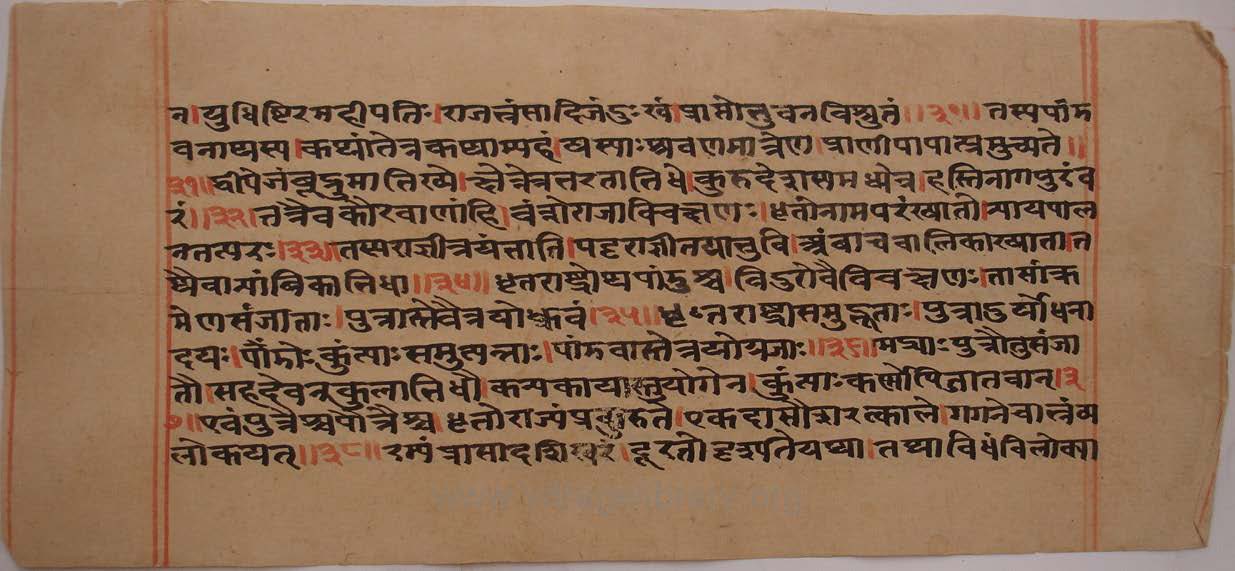 न।युधिष्टिरमहीपतिः।राजत्त्वंसादिजंदुःखं।प्रामोत्तुवनविश्रुतं॥३०॥तस्यपांड
वनाथस्य।कथांतेत्रकथाम्यहं।यस्याःश्रवणमात्रेण।प्राणीपापात्प्रमुच्यते॥
३१॥द्वीपेजंबूद्रुमाभिख्ये।क्षेत्रेत्रभरताभिधे।कुरुदेशसमध्येत्र।हस्तिनागपुरंव
रं॥३२॥तत्रैवकौरवाणांहि।वंशेराजाविचक्षणः।धृतोनामपरंख्यातो।न्यायपाल
नतत्परः।३३।तस्यराज्ञीत्रयंभाति।पट्टराज्ञीतथाभुवि।अंबाचबालिकाख्याता।त
थैवान्यांबिकाभिधा॥३४॥धृतराष्ट्रोथपांडुश्च।विदुरोवैविचक्षणः।तासांक्र
मेणसंजाताः।पुत्रास्तेवैत्रयोध्रुवं।३५।धृतराष्ट्रासमुद्भूताः।पुत्रादुर्योधना
दयः।पांडोःकुंत्याःसमुत्पन्नाः।पांडवास्तेत्रयोग्रजाः॥३६॥मद्र्याःपुत्रौतुसंजा
तौ।सहदेवनकुलाभिधौ।कन्यकायास्तुयोगेन।कुंत्याःकर्णोपिजातवान्।३
७।एवंपुत्रैश्चपौत्रैश्च।धृतोराज्यंप्रकुरुते।एकदासौशरत्काले।गगनेचाभ्रंव्य
लोकयत्॥३८॥रम्यंप्रासादशिखरं।दूरतोदृश्यतेयथा।तथाविधंविलोक्या